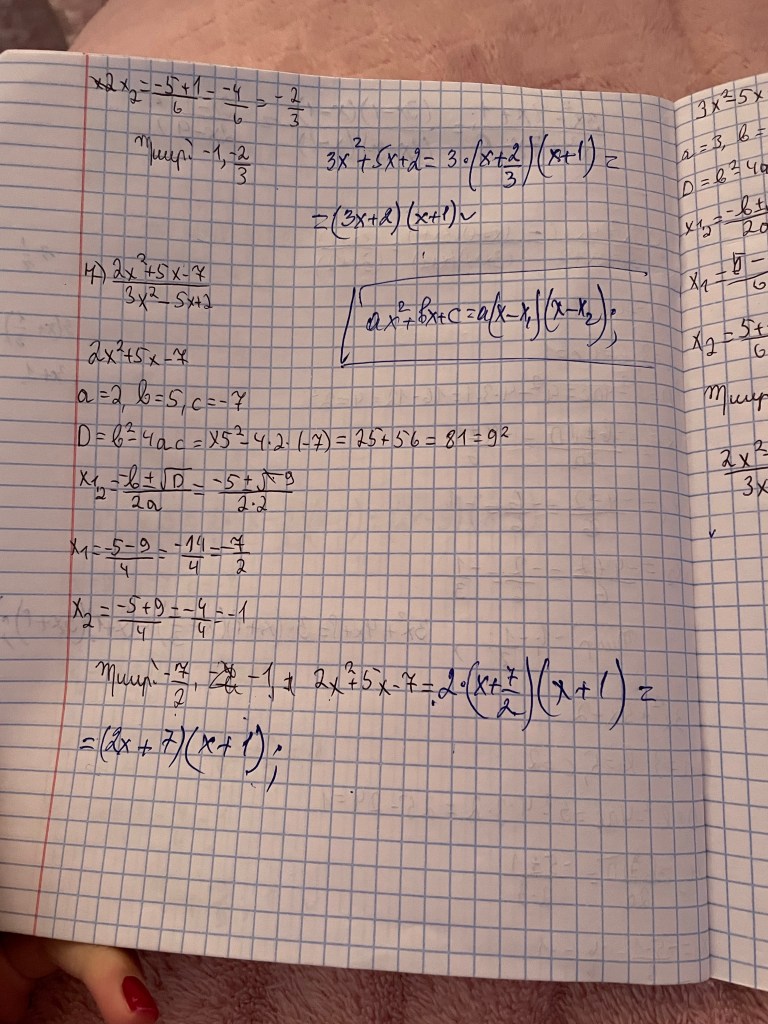 x2 x₂ = (-5+1)/6 = -4/6 = -2/3
-1, -2/3
3x²+5x+2 = 3·(x+2/3)(x+1) =
= (3x+2)(x+1)
4) (2x²+5x-7)/(3x²-5x+2)
ax²+bx+c = a(x-x₁)(x-x₂);
2x²+5x-7
a=2, b=5, c=-7
D = b²-4ac = x5²-4·2·(-7) = 25+56 = 81 = 9²
x1,₂ = (-b±√D)/2a = (-5±√9)/(2·2)
x₁ = (-5-9)/4 = -14/4 = -7/2
x₂ = (-5+9)/4 = -4/4 = -1
-7/2, -1
2x²+5x-7 = 2·(x+7/2)(x+1) =
= (2x+7)(x+1);
3x²-5x
a=3, b=
D=b²-4a
x1,₂ =
x₁ =
x₂ =
2x²
3x